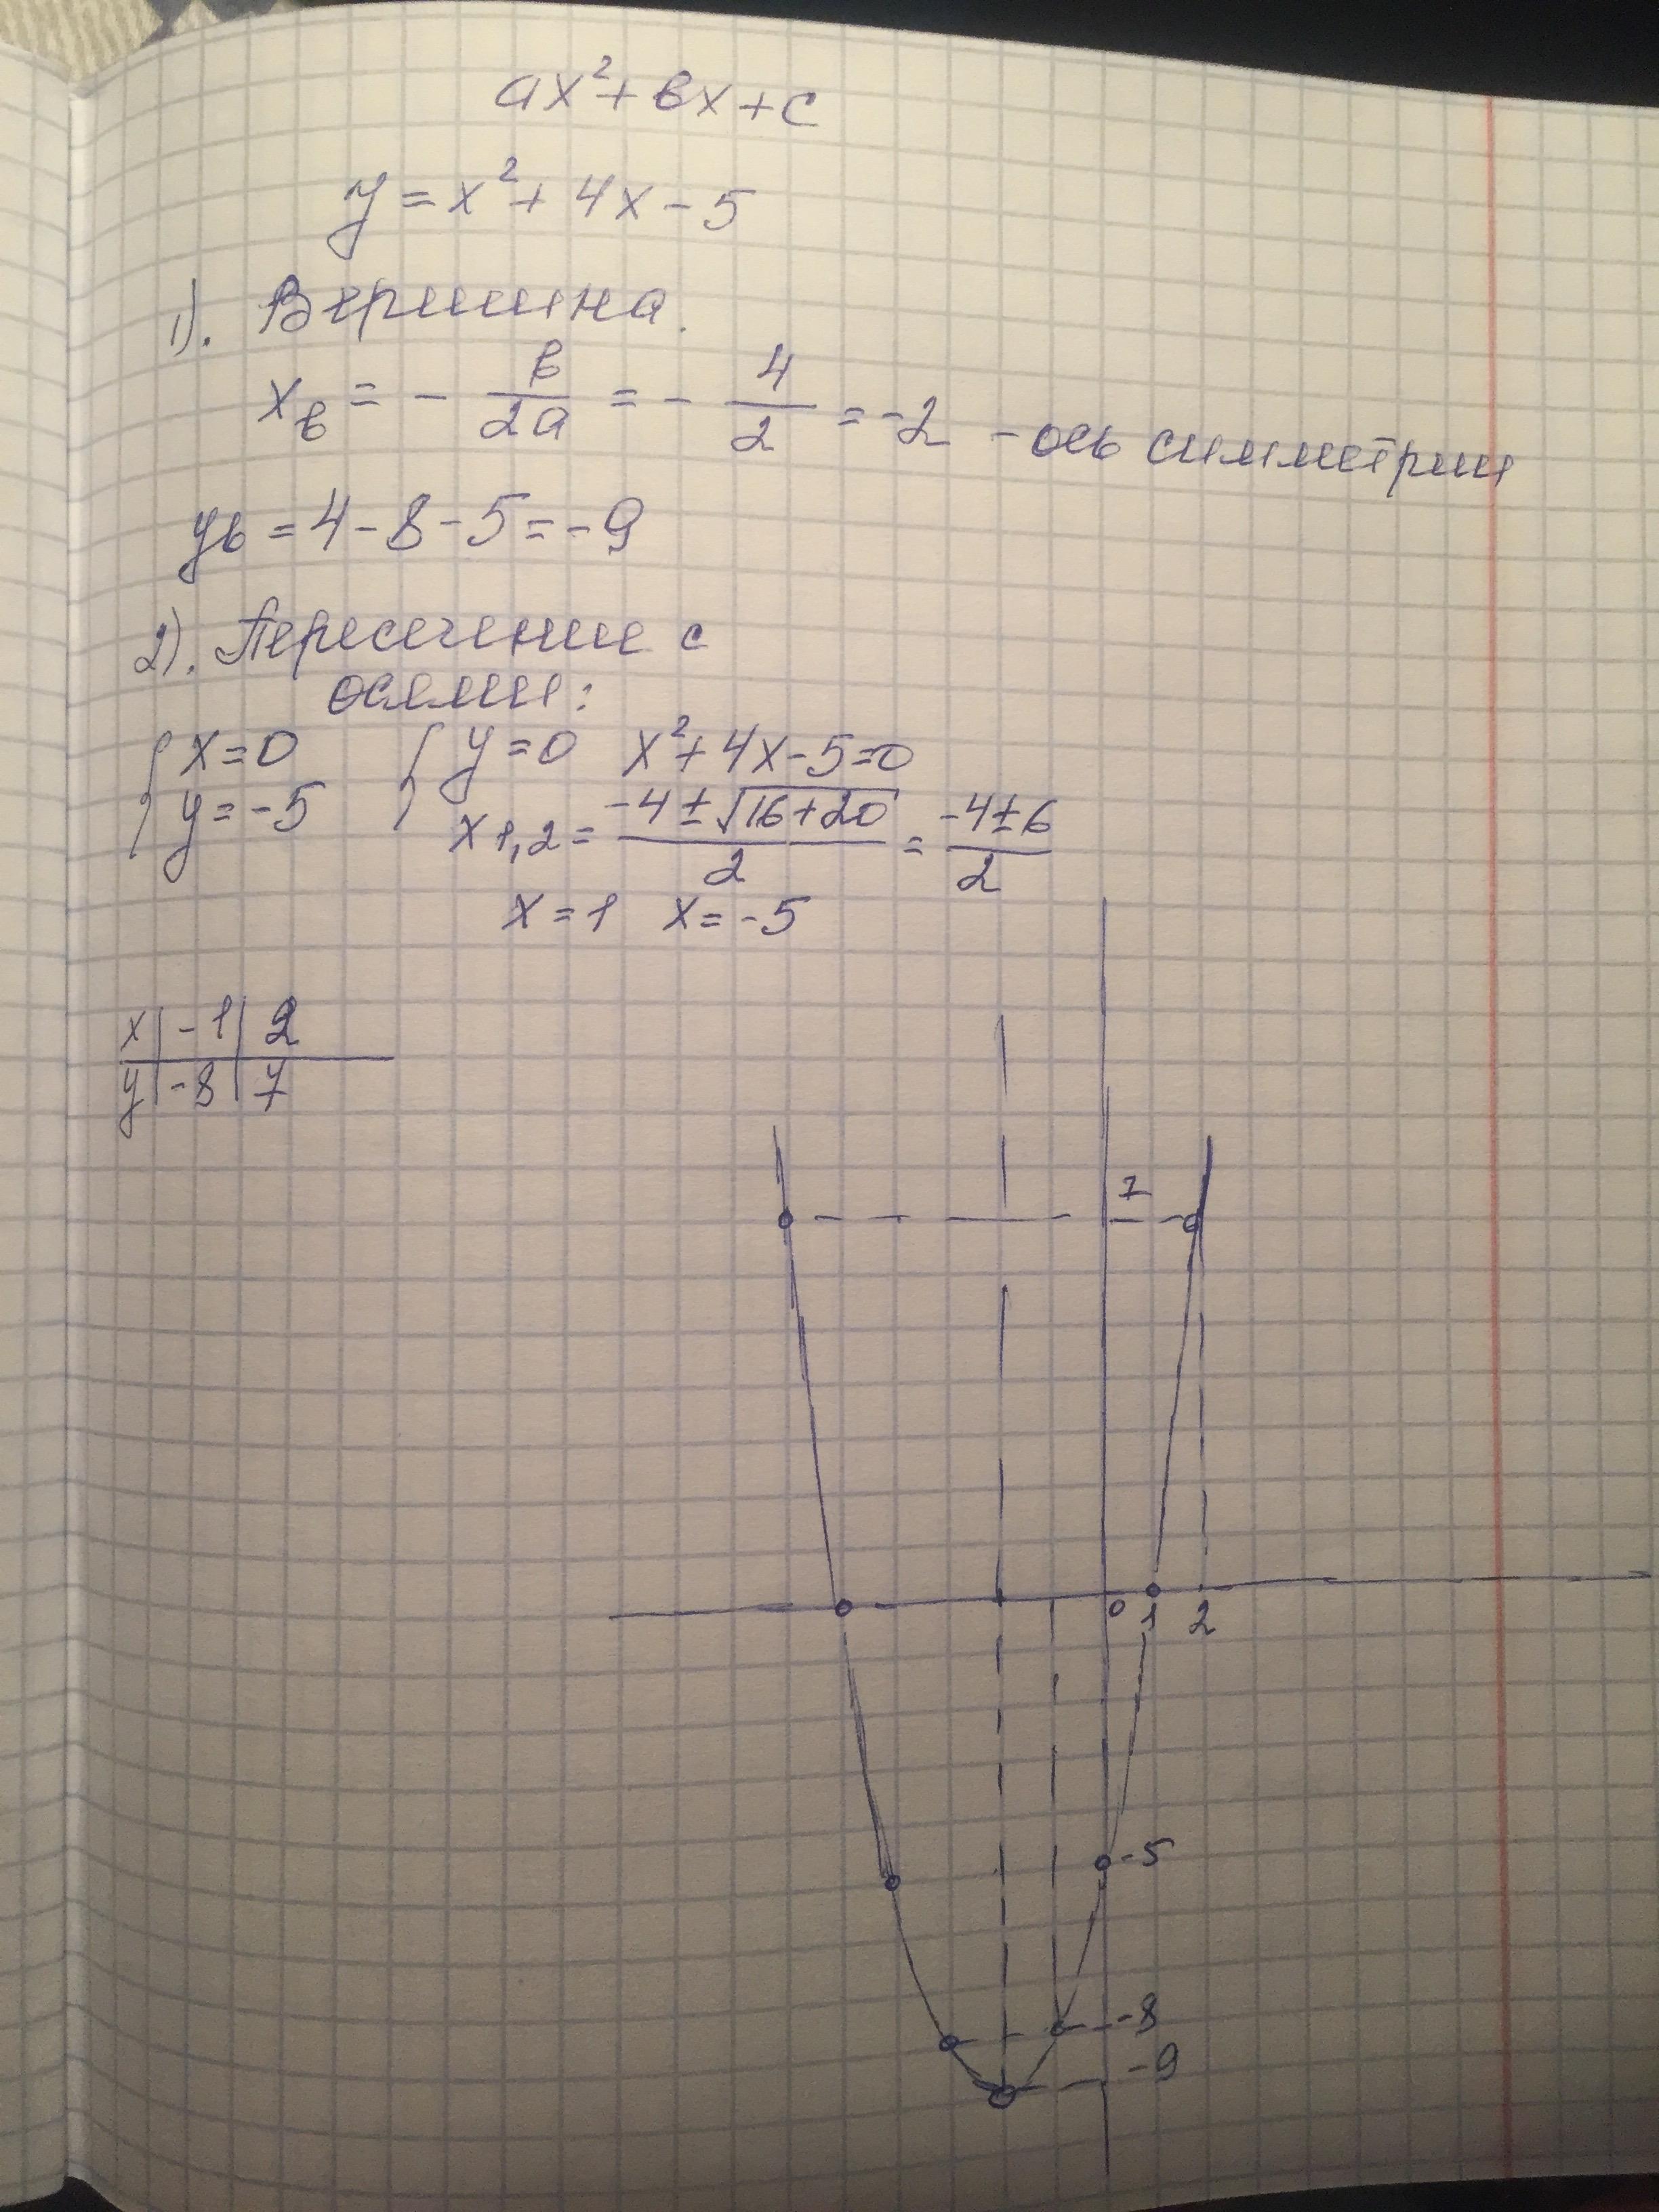 ax²+bx+c
y=x²+4x-5
1). Вершина.
xв = - b/2a = - 4/2 = -2 - ось симметрии
yв = 4-8-5=-9
2). Пересечение с
осями:
{ x=0 { y=0 x²+4x-5=0
y=-5 x1,2 = (-4±√(16+20))/2 = (-4±6)/2
x=1 x=-5
x | -1 | 2
y | -8 | 7
7
0 1 2
-5
-8
-9